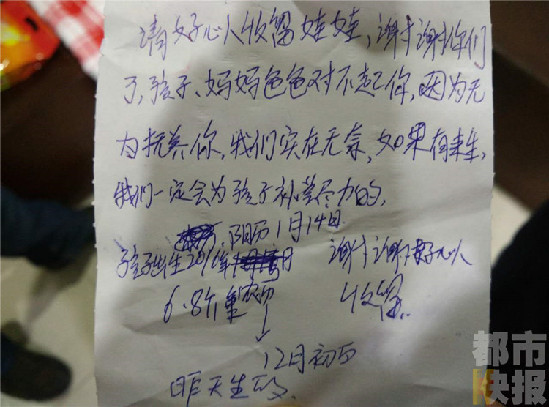 请好心人收留娃娃，谢谢你们
了，孩子、妈妈爸爸对不起你，因为无
力抚养你，我们实在无奈，如果有来生，
我们一定会为孩子补尝尽力的，
阴历1月14日
孩子出生201 年 日
谢谢好心人
6.8斤重 农历
收留
12月初
昨天生的
都市
快报